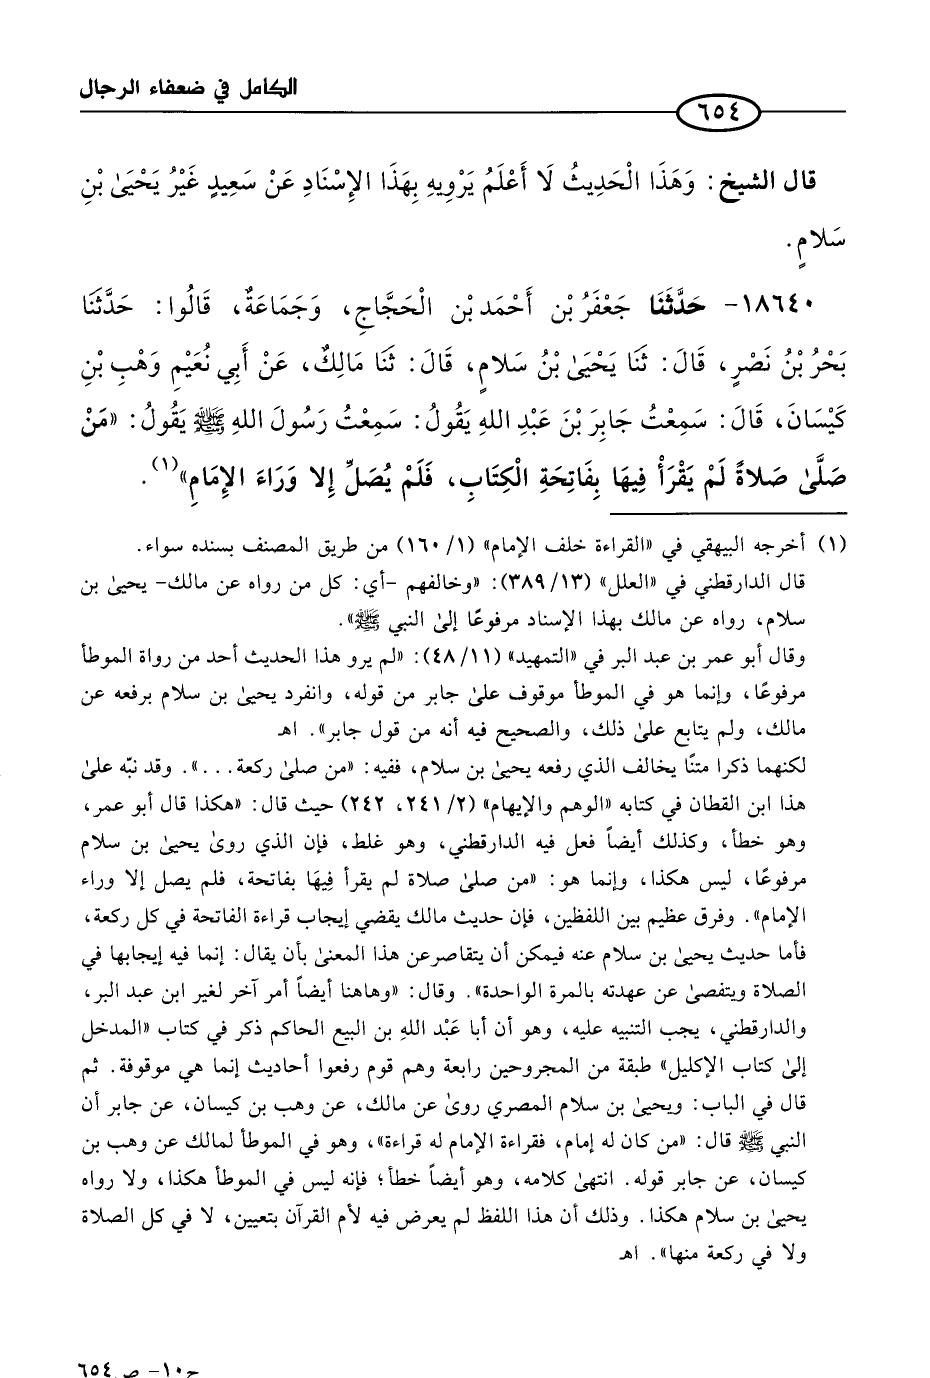 الكامل في ضعفاء الرجال
٦٥٤
قال الشيخ: وَهَذَا الْحَدِيثُ لَا أَعْلَمُ يَرْوِيهِ بِهَذَا الإِسْنَادِ عَنْ سَعِيدٍ غَيْرُ يَحْيَىٰ بْنِ
سَلامٍ.
١٨٦٤٠- حَدَّثَنَا جَعْفَرُ بْن أَحْمَد بْن الْحَجَّاجِ، وَجَمَاعَةٌ، قَالُوا: حَدَّثَنَا
بَحْرُ بْنُ نَصْرٍ، قَالَ: ثَنَا يَحْيَىٰ بْنُ سَلامٍ، قَالَ: ثَنَا مَالِكٌ، عَنْ أَبِي نُعَيْمٍ وَهْبِ بْنِ
كَيْسَانَ، قَالَ: سَمِعْتُ جَابِرَ بْنَ عَبْدِ اللهِ يَقُولُ: سَمِعْتُ رَسُولَ اللهِ ﷺ يَقُولُ: «مَنْ
صَلَّىٰ صَلاةً لَمْ يَقْرَأْ فِيهَا بِفَاتِحَةِ الْكِتَابِ، فَلَمْ يُصَلِّ إِلا وَرَاءَ الإِمَامِ»(١).
(١) أخرجه البيهقي في «القراءة خلف الإمام» (١/ ١٦٠) من طريق المصنف بسنده سواء.
قال الدارقطني في «العلل» (١٣/ ٣٨٩): «وخالفهم -أي: كل من رواه عن مالك- يحيىٰ بن
سلام، رواه عن مالك بهذا الإسناد مرفوعًا إلىٰ النبي ﷺ».
وقال أبو عمر بن عبد البر في «التمهيد» (١١/ ٤٨): «لم يرو هذا الحديث أحد من رواة الموطأ
مرفوعًا، وإنما هو في الموطأ موقوف علىٰ جابر من قوله، وانفرد يحيىٰ بن سلام برفعه عن
مالك، ولم يتابع علىٰ ذلك، والصحيح فيه أنه من قول جابر». اهـ
لكنهما ذكرا متنًا يخالف الذي رفعه يحيىٰ بن سلام، ففيه: «من صلىٰ ركعة...». وقد نبّه علىٰ
هذا ابن القطان في كتابه «الوهم والإيهام» (٢/ ٢٤١، ٢٤٢) حيث قال: «هكذا قال أبو عمر،
وهو خطأ، وكذلك أيضاً فعل فيه الدارقطني، وهو غلط، فإن الذي روىٰ يحيىٰ بن سلام
مرفوعًا، ليس هكذا، وإنما هو: «من صلىٰ صلاة لم يقرأ فِيهَا بفاتحة، فلم يصل إلا وراء
الإمام». وفرق عظيم بين اللفظين، فإن حديث مالك يقضي إيجاب قراءة الفاتحة في كل ركعة،
فأما حديث يحيىٰ بن سلام عنه فيمكن أن يتقاصرعن هذا المعنىٰ بأن يقال: إنما فيه إيجابها في
الصلاة ويتفصىٰ عن عهدته بالمرة الواحدة». وقال: «وهاهنا أيضاً أمر آخر لغير ابن عبد البر،
والدارقطني، يجب التنبيه عليه، وهو أن أبا عَبْد اللهِ بن البيع الحاكم ذكر في كتاب «المدخل
إلىٰ كتاب الإكليل» طبقة من المجروحين رابعة وهم قوم رفعوا أحاديث إنما هي موقوفة. ثم
قال في الباب: ويحيىٰ بن سلام المصري روىٰ عن مالك، عن وهب بن كيسان، عن جابر أن
النبي ﷺ قال: «من كان له إمام، فقراءة الإمام له قراءة»، وهو في الموطأ لمالك عن وهب بن
كيسان، عن جابر قوله. انتهىٰ كلامه، وهو أيضاً خطأ؛ فإنه ليس في الموطأ هكذا، ولا رواه
يحيىٰ بن سلام هكذا. وذلك أن هذا اللفظ لم يعرض فيه لأم القرآن بتعيين، لا في كل الصلاة
ولا في ركعة منها». اهـ
ج١٠- ص٦٥٤